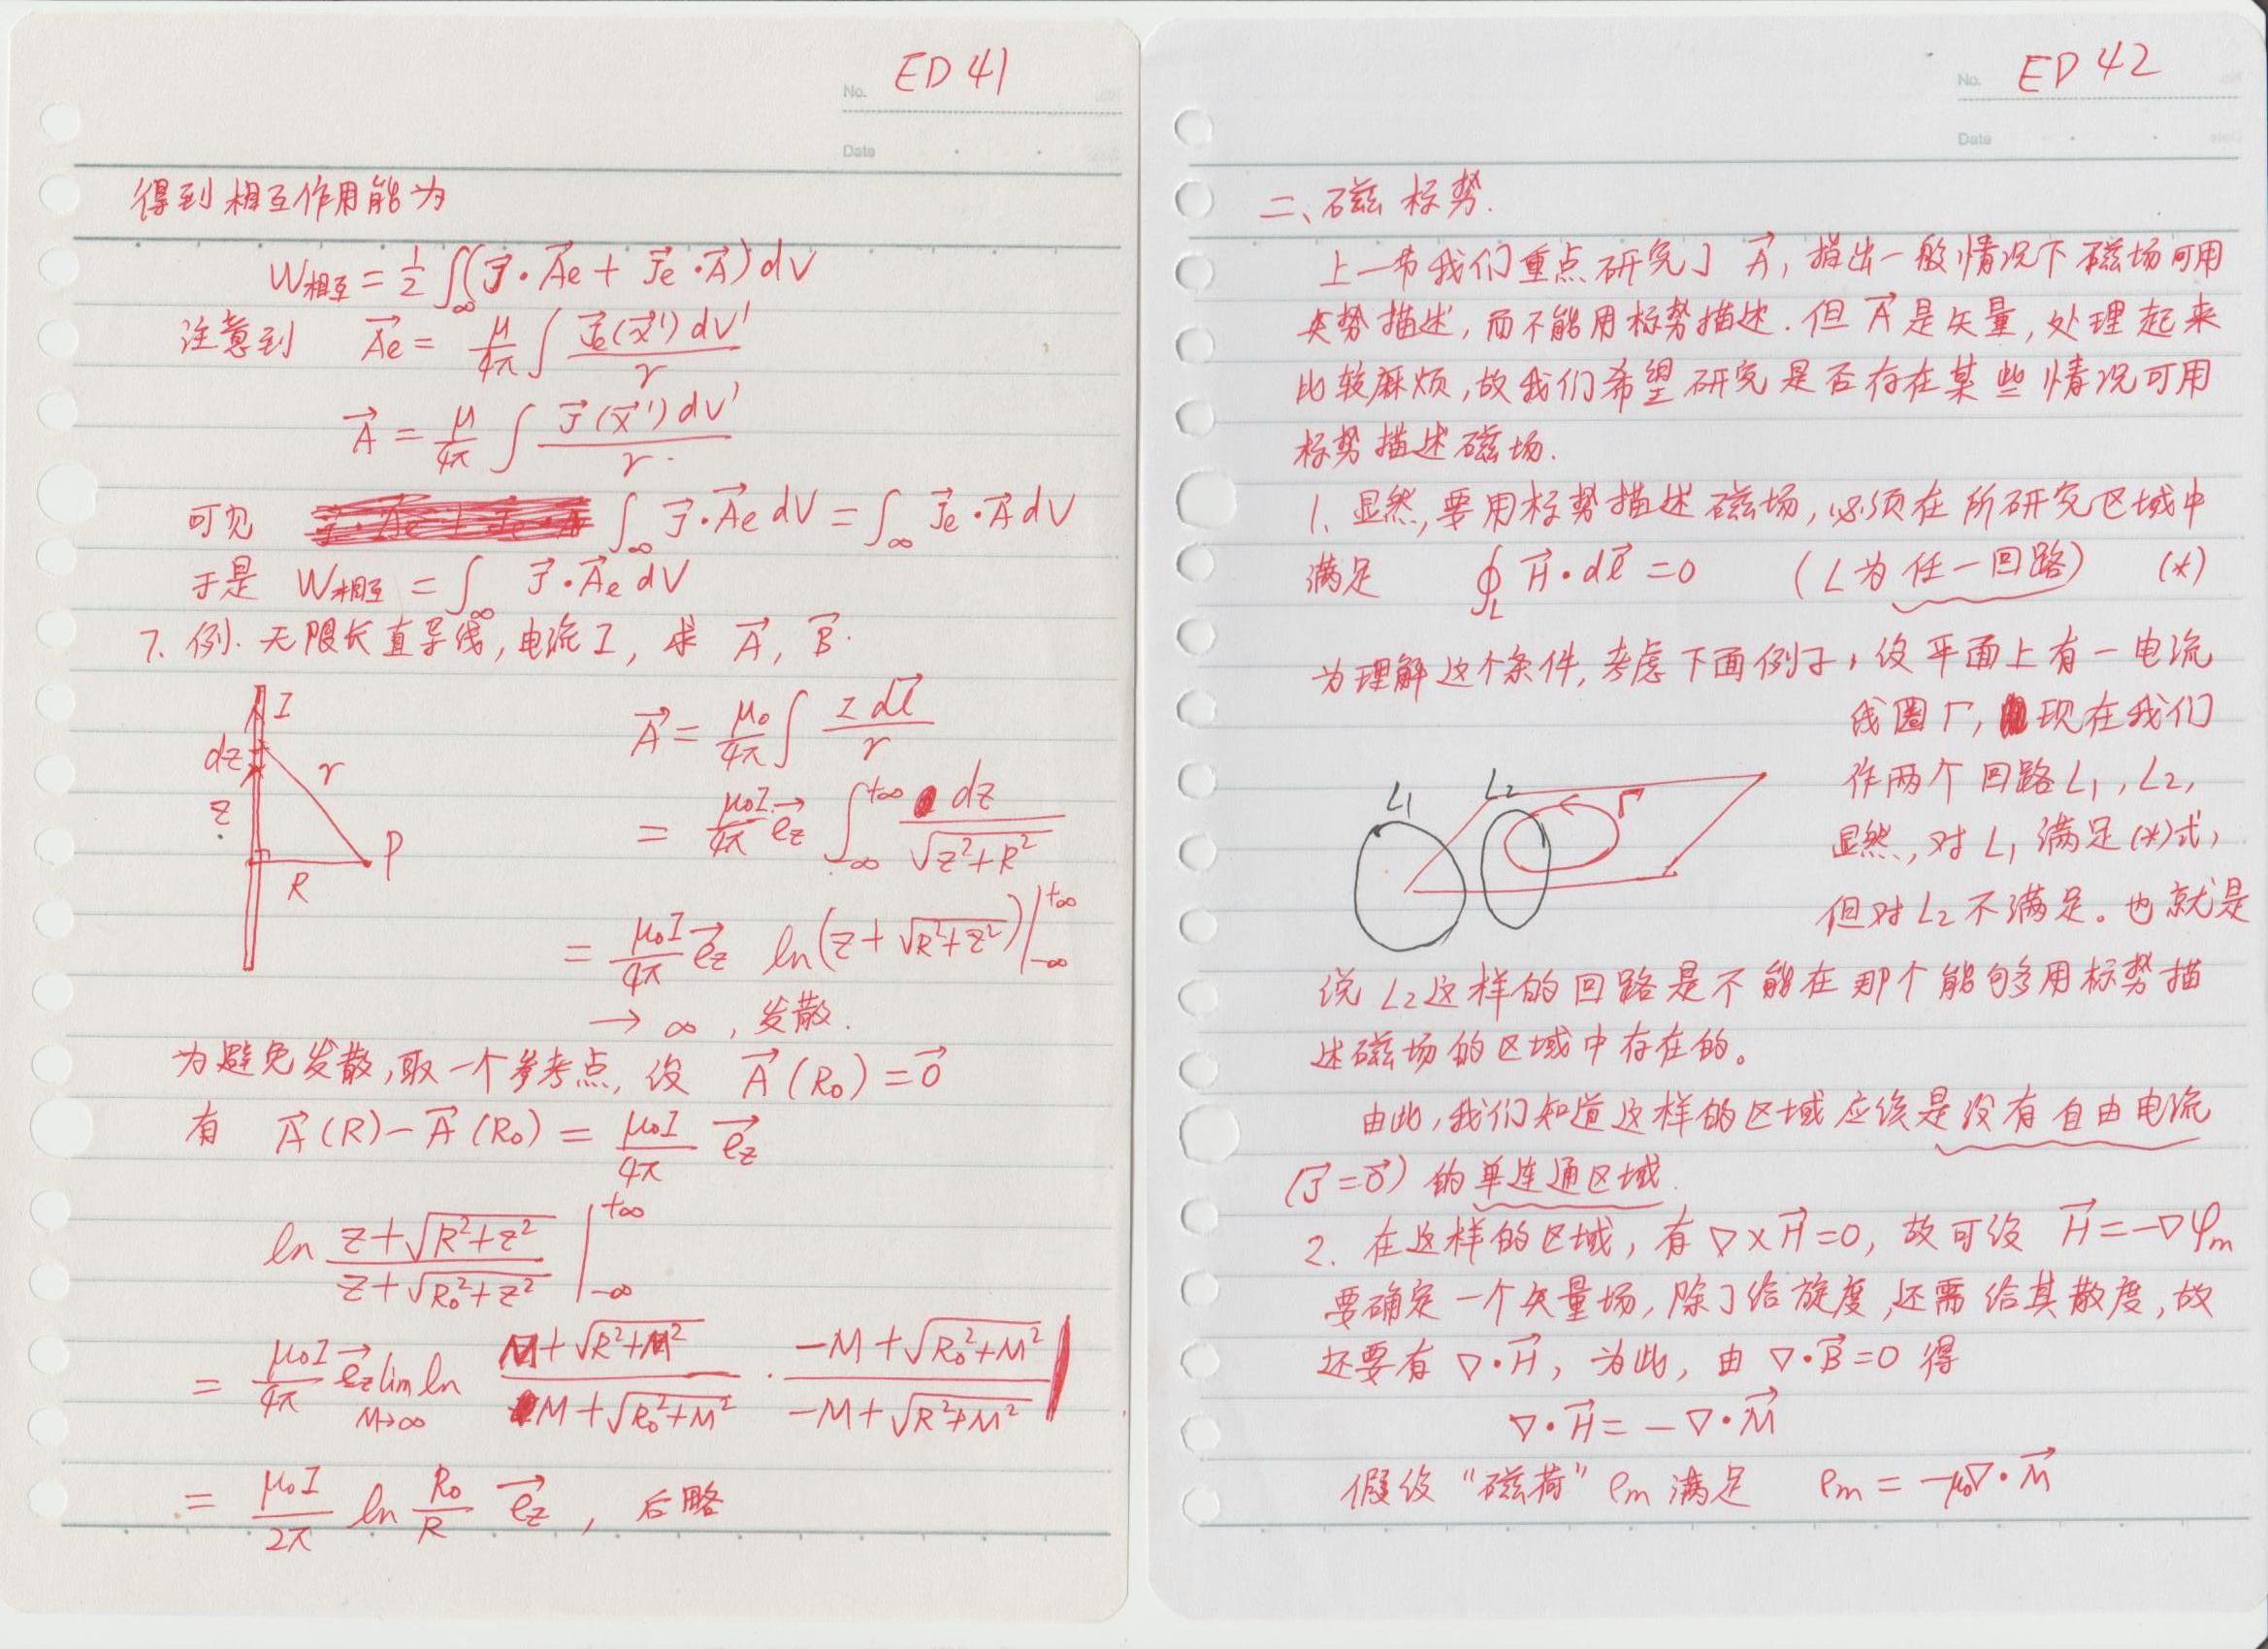 No. ED 41
Date
得到相互作用能为
W相互 = 1/2 ∫∞ (J⃗·A⃗e + J⃗e·A⃗) dV
注意到 A⃗e = μ/4π ∫ J⃗e(x⃗')dV'/r
A⃗ = μ/4π ∫ J⃗(x⃗')dV'/r.
可见 ∫∞ J⃗·A⃗e dV = ∫∞ J⃗e·A⃗ dV
于是 W相互 = ∫∞ J⃗·A⃗e dV
7. 例. 无限长直导线, 电流 I, 求 A⃗, B⃗.
I
dz
r
z
P
R
A⃗ = μ₀/4π ∫ I dl⃗/r
= μ₀I/4π e⃗z ∫_{-∞}^{+∞} dz/√(z²+R²)
= μ₀I/4π e⃗z ln(z+√(R²+z²))|_{-∞}^{+∞}
→ ∞, 发散.
为避免发散, 取一个参考点, 设 A⃗(R₀) = 0⃗
有 A⃗(R) - A⃗(R₀) = μ₀I/4π e⃗z
ln (z+√(R²+z²))/(z+√(R₀²+z²)) |_{-∞}^{+∞}
= μ₀I/4π e⃗z lim_{M→∞} ln (M+√(R²+M²))/(M+√(R₀²+M²)) · (-M+√(R₀²+M²))/(-M+√(R²+M²))
= μ₀I/2π ln R₀/R e⃗z, 后略
No. ED 42
Date
二、磁标势.
上一节我们重点研究了 A⃗, 指出一般情况下磁场可用
矢势描述, 而不能用标势描述. 但 A⃗ 是矢量, 处理起来
比较麻烦, 故我们希望研究是否存在某些情况可用
标势描述磁场.
1. 显然, 要用标势描述磁场, 必须在所研究区域中
满足 ∮_L H⃗·dl⃗ = 0 (L为任一回路) (*)
为理解这个条件, 考虑下面例子, 设平面上有一电流
线圈 Γ, 现在我们
作两个回路 L₁, L₂,
显然, 对 L₁ 满足(*)式,
但对 L₂ 不满足。也就是
L₁
L₂
Γ
说 L₂ 这样的回路是不能在那个能够用标势描
述磁场的区域中存在的。
由此, 我们知道这样的区域应该是没有自由电流
(J⃗=0⃗) 的单连通区域.
2. 在这样的区域, 有 ∇×H⃗=0, 故可设 H⃗=-∇φm
要确定一个矢量场, 除了给旋度, 还需给其散度, 故
还要有 ∇·H⃗, 为此, 由 ∇·B⃗=0 得
∇·H⃗ = -∇·M⃗
假设 "磁荷" ρm 满足 ρm = -μ₀∇·M⃗